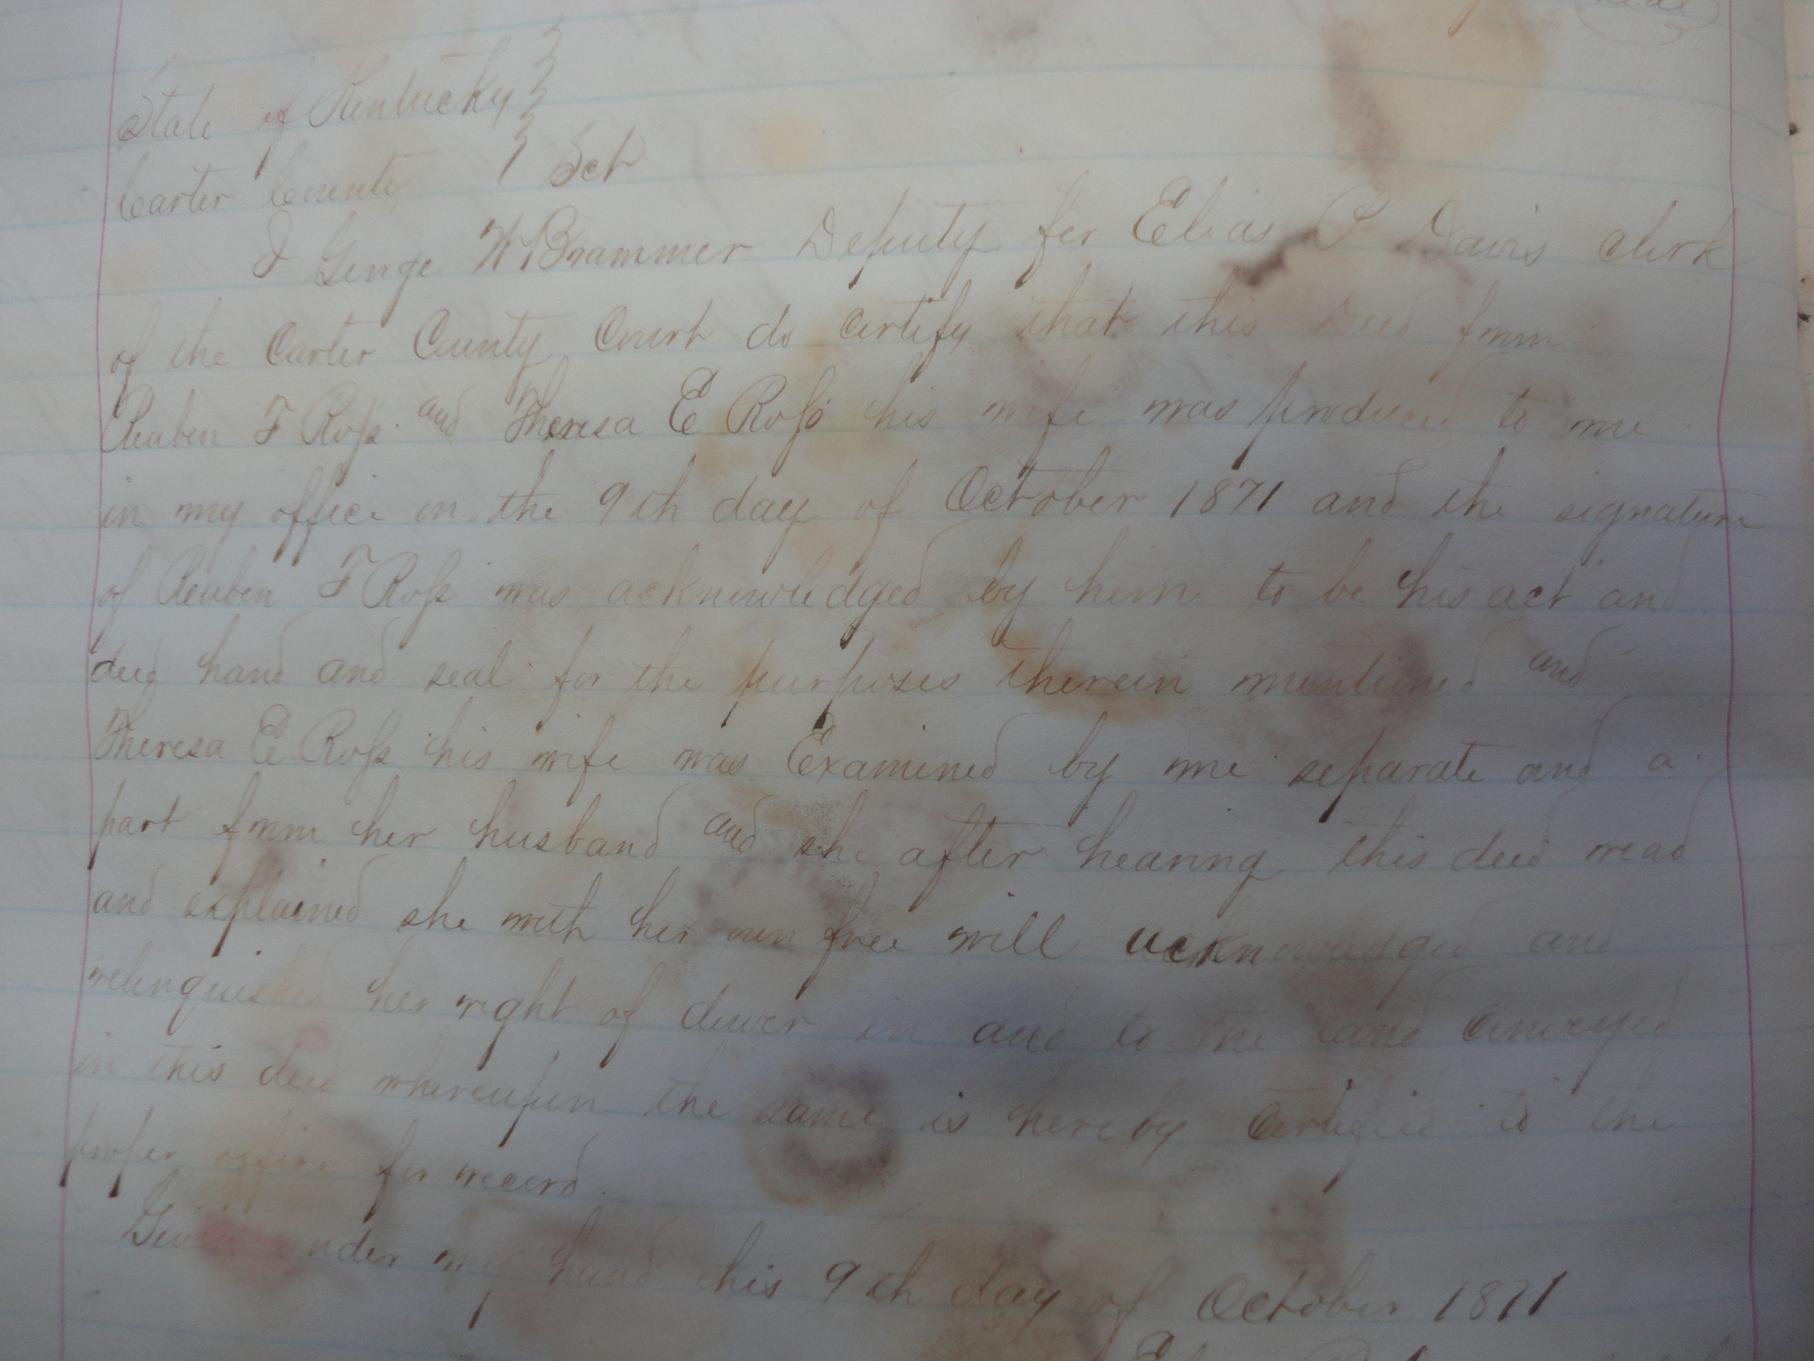 State of Kentucky }
Carter County } Sct
I George W Brammer Deputy for Elias P Davis clerk
of the Carter County Court do certify that this Deed from
Reuben F Ross and Theresa E Ross his wife was produced to me
in my office on the 9th day of October 1871 and the signature
of Reuben F Ross was acknowledged by him to be his act and
deed hand and seal for the purposes therein mentioned and
Theresa E Ross his wife was Examined by me separate and a
part from her husband and she after hearing this deed read
and explained she with her own free will acknowledged and
relinquished her right of dower in and to the land conveyed
in this deed whereupon the same is hereby certified to the
proper office for record.
Given under my hand this 9th day of October 1871